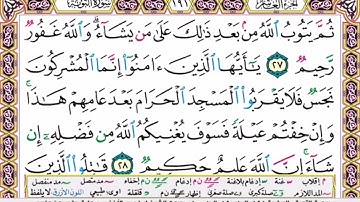 الجزء العاشر ١٩١ سورة التوبة
ثُمَّ يَتُوبُ ٱللَّهُ مِنۢ بَعْدِ ذَٰلِكَ عَلَىٰ مَن يَشَآءُ ۗ وَٱللَّهُ غَفُورٌ
رَّحِيمٌ ٢٧ يَٰٓأَيُّهَا ٱلَّذِينَ ءَامَنُوٓا۟ إِنَّمَا ٱلْمُشْرِكُونَ
نَجَسٌ فَلَا يَقْرَبُوا۟ ٱلْمَسْجِدَ ٱلْحَرَامَ بَعْدَ عَامِهِمْ هَٰذَا ۚ
وَإِنْ خِفْتُمْ عَيْلَةً فَسَوْفَ يُغْنِيكُمُ ٱللَّهُ مِن فَضْلِهِۦٓ إِن
شَآءَ ۚ إِنَّ ٱللَّهَ عَلِيمٌ حَكِيمٌ ٢٨ قَٰتِلُوا۟ ٱلَّذِينَ